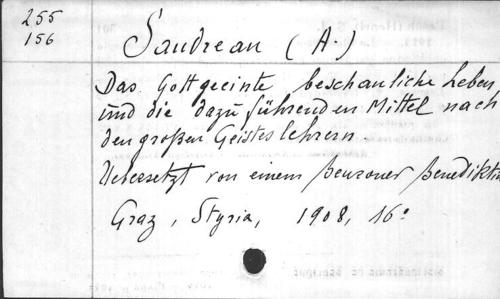 255
156
Saudreau (A.)
Das Gottgeeinte beschauliche Leben
und die dazu führenden Mittel nach
den großen Geisteslehrern.
Uebersetzt von einem Beuroner Benediktin
Graz, Styria, 1908, 16º